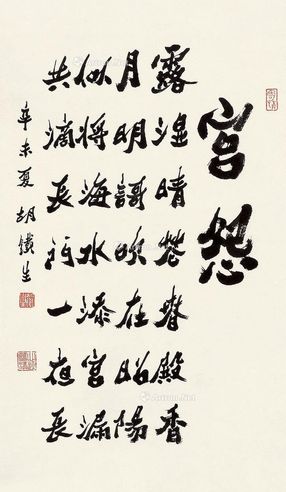 宮怨
露湿晴花春殿香
月明謌吹在昭陽
似将海水添宮漏
共滴長门一夜長
辛未夏 胡鐵生